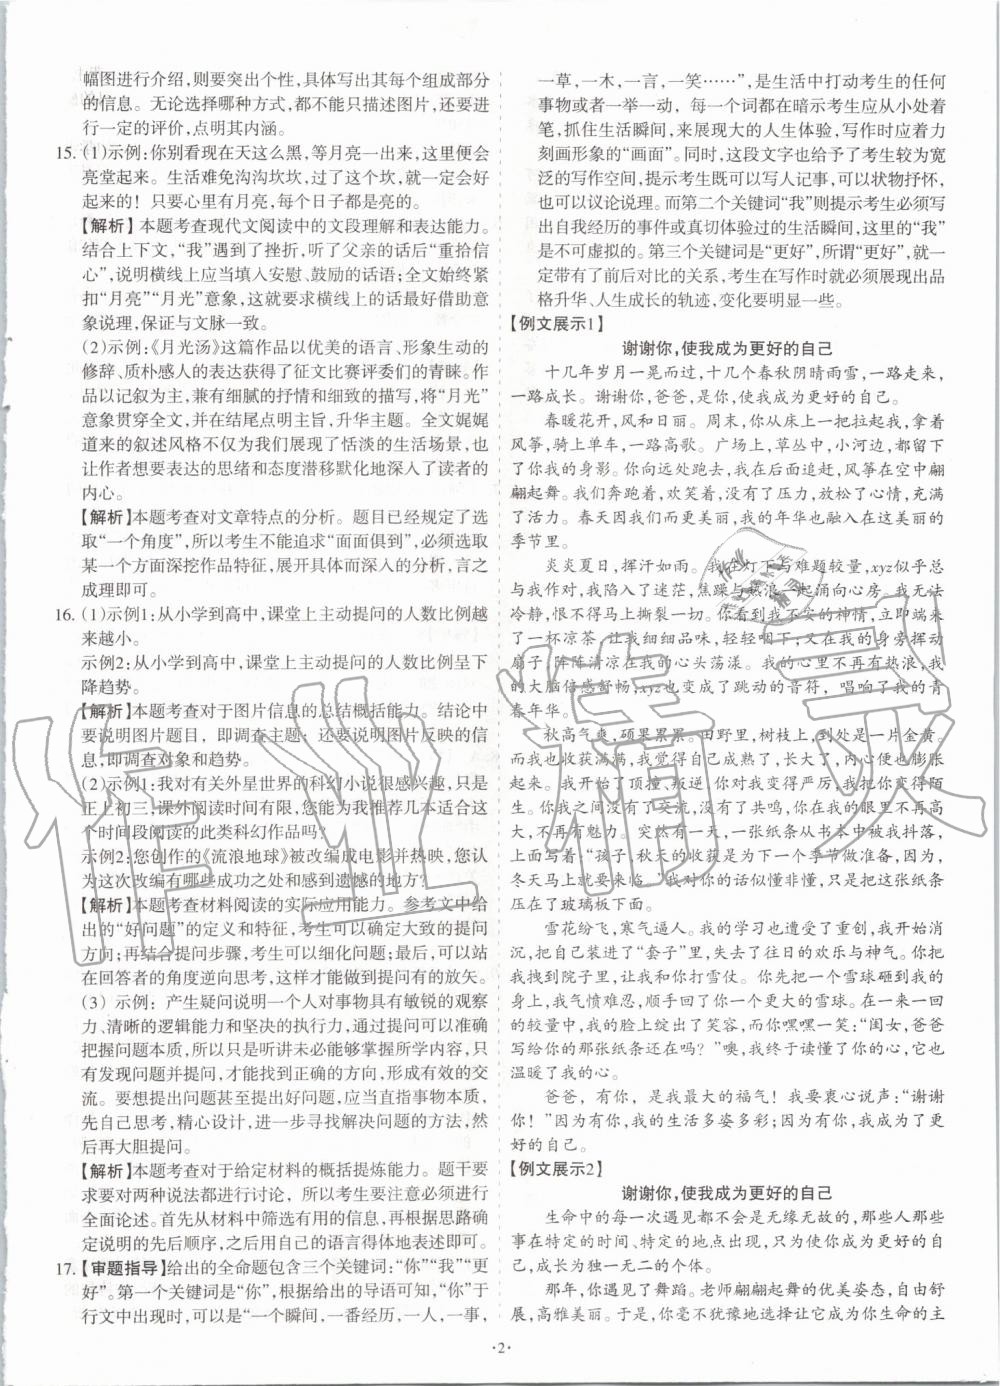 幅图进行介绍,则要突出个性,具体写出其每个组成部分
的信息。无论选择哪种方式,都不能只描述图片,还要进
行一定的评价,点明其内涵。
15. (1)示例:你别看现在天这么黑,等月亮一出来,这里就会
亮堂起来。生活难免沟沟坎坎,过了这个坎,就会好
起来的!只要心里有月亮,每个日子都是亮的。
【解析】本题考查现代文阅读中的文段理解和表达能力。
结合上下文,“我”遇到了挫折,听了父亲的话后“重拾信
心”,说明横线上应当填入安慰、鼓励的话语;全文始终紧
扣“月亮”“月光”意象,这就要求横线上的话最好借助意
象说理,保证与文脉一致。
(2)示例:《月光汤》这篇作品以优美的语言、形象生动的
修辞、质朴感人的表现获得了征文比赛评委们的青睐。作
品以记叙为主,兼有细腻的抒情和细致的描写,将“月光”
意象贯穿全文,并在结尾点明主旨,升华主题。全文娓娓
道来的叙述风格不仅为我们展现了恬淡的生活场景,也
让作者想要表达的思绪和态度潜移默化地深入了读者的
内心。
【解析】本题考查对文章特点的分析。题目已经规定了选
取“一个角度”,所以考生不能追求“面面俱到”,必须选取
某一个方面深挖作品特征,展开具体而深入的分析,言之
成理即可。
16. (1)示例1:从小学到高中,课堂上主动提问的人数比例越
来越小。
示例2:从小学到高中,课堂上主动提问的人数比例呈下
降趋势。
【解析】本题考查对于图片信息的总结概括能力。结论中
要说明题目,即调查主题;还要说明图片反映的信
息,即调查对象和趋势。
(2)示例1:我对有关外星世界的科幻小说很感兴趣,只是
正上初三,课外阅读时间有限,您能为我推荐几本适合这
个时间段阅读的此类科幻作品吗?
示例2:您创作的《流浪地球》被改编成电影并热映,您认
为这次改编有哪些成功之处和感到遗憾的地方?
【解析】本题考查材料阅读的实际应用能力。参考文中给
出的“好问题”的定义和特征,考生可以确定大致的提问
方向;再结合提问步骤,考生可以细化问题;最后,可以站
在回答者的角度逆向思考,这样才能做到提问有的放矢。
(3)示例:产生疑问说明一个人对事物具有敏锐的观察
力、清晰的逻辑能力和坚决的执行力,通过提问可以准确
把握问题本质,所以只是听讲未必能够掌握所学内容,只
有发现问题并提问,才能找到正确的方向,形成良性的交
流。要想提出问题甚至提出好问题,应当直指事物本质,
先自己尝试,精心设计,进一步寻找解决问题的方法,然
后再大胆提问。
【解析】本题考查对于给定材料的概括提炼能力。题干要
求要对两种说法都进行讨论,所以考生要注意必须进行
全面论述。首先从材料中筛选有用的信息,再根据思路确
定说明的先后顺序,之后用自己的语言得体地表述即可。
17. 【审题指导】给出的全命题包含三个关键词:“你”“我”“更
好”。第一个关键词是“你”,根据题目的导语可知,“你”于
行文中出现时,可以是“一个瞬间,一番经历,一人,一事,
一草,一木,一言,一笑……”,是生活中打动考生的任何
事物或者一举一动,每一个词都在暗示考生应从小处着
笔,抓住生活瞬间,来展现大的人生体验,写作时要努力
刻画形象的“画面”。同时,这段文字也给予了考生较为宽
泛的写作空间,提示考生既可以写人记事,可以状物抒怀,
也可以议论说理。而第二个关键词“我”则提示考生必须写
出自我经历的事件或真切体验过的生活瞬间,这里的“我”
是不可虚拟的。第三个关键词是“更好”,所谓“更好”,就一
定带有了前后对比的关系,考生在写作时就必须展现出品
格升华、人生成长的轨迹,变化要明显一些。
【例文展示1】
谢谢你,使我成为更好的自己
十几年岁月一晃而过,十几个春秋阴晴雨雪,一路走来,
一路成长。谢谢你,爸爸,是你,使我成为更好的自己。
春暖花开,风和日丽。周末,你从床上一把拉起我,拿着
风筝,骑上单车,一路高歌。广场上,草丛中,小河边,都留下
了你我的身影。你向远处跑去,我在后面追赶,风筝在空中翩
翩起舞。我们奔跑着,欢笑着,没有了压力,放松了心情,充满
了活力。春天因我们而更美丽,我的年华也绽放在这开花的
季节里。
炎炎夏日,挥汗如雨。我在灯下与难题较量,xyz似乎总
与我作对,让我陷入了迷茫,焦躁与愤怒一起涌向心房,我无法
冷静,恨不得马上撕裂一切。你看到我不安的神情,立即端来
了一杯凉茶,让我细细品味,轻轻咽下,又在我的身旁挥动
扇子,阵阵清凉在我的心头荡漾。我的心里不再有热浪,我的
大脑倍感舒畅,xyz也变成了跳动的音符,唱响了我的青
春年华。
秋高气爽,硕果累累。田野里,树枝上,到处是一片金黄。
而我也从收获满满,成熟了,长大了,内心便也膨胀
起来。不知从何时起,你对我变得严厉,我把你变得陌
生。你我之间没有了交流,没有了共鸣,你在我的眼里不再高
大,不再有魅力。突然有一天,一张纸条从书本中被我抖落,
上面写着:“孩子,秋天的收获是为下一个季节做准备,因为
冬天马上就要来临。”我对你的话似懂非懂,只是把这张纸条
压在了玻璃板下面。
雪花纷飞,寒气逼人。我的学习也遭受了重创,我开始消
沉,把自己装进了“套子”里,失去了往日的欢乐与神气。你把
我拽到院子里,让我和你打雪仗。你先把一个雪球砸到我的
身上,我气愤难忍,顺手回了你一个更大的雪球。在一来一回
的较量中,我的脸上绽出了笑容,而你嘿嘿一笑:“闺女,爸爸
写给你的那张纸条还在吗?”噢,我终于读懂了你的心,它也
温暖了我的心。
爸爸,有你,是我最大的福气!我要衷心说声:“谢谢
你!”因为有你,我的生活多姿多彩;因为有你,我成为更好的
好的自己。
【例文展示2】
谢谢你,使我成为更好的自己
生命中的每一次遇见都不会是无缘无故的,那人那些
事在特定的时间、特定的地点出现,只为令我们更好地遇见自
己,成长为独一无二的个体。
那年,你是舞蹈。老师翩翩起舞的优美姿态,自由舒
展,高雅美丽。于是,你毫不犹豫地选择让它成为你生命的主
·2·
作业精灵